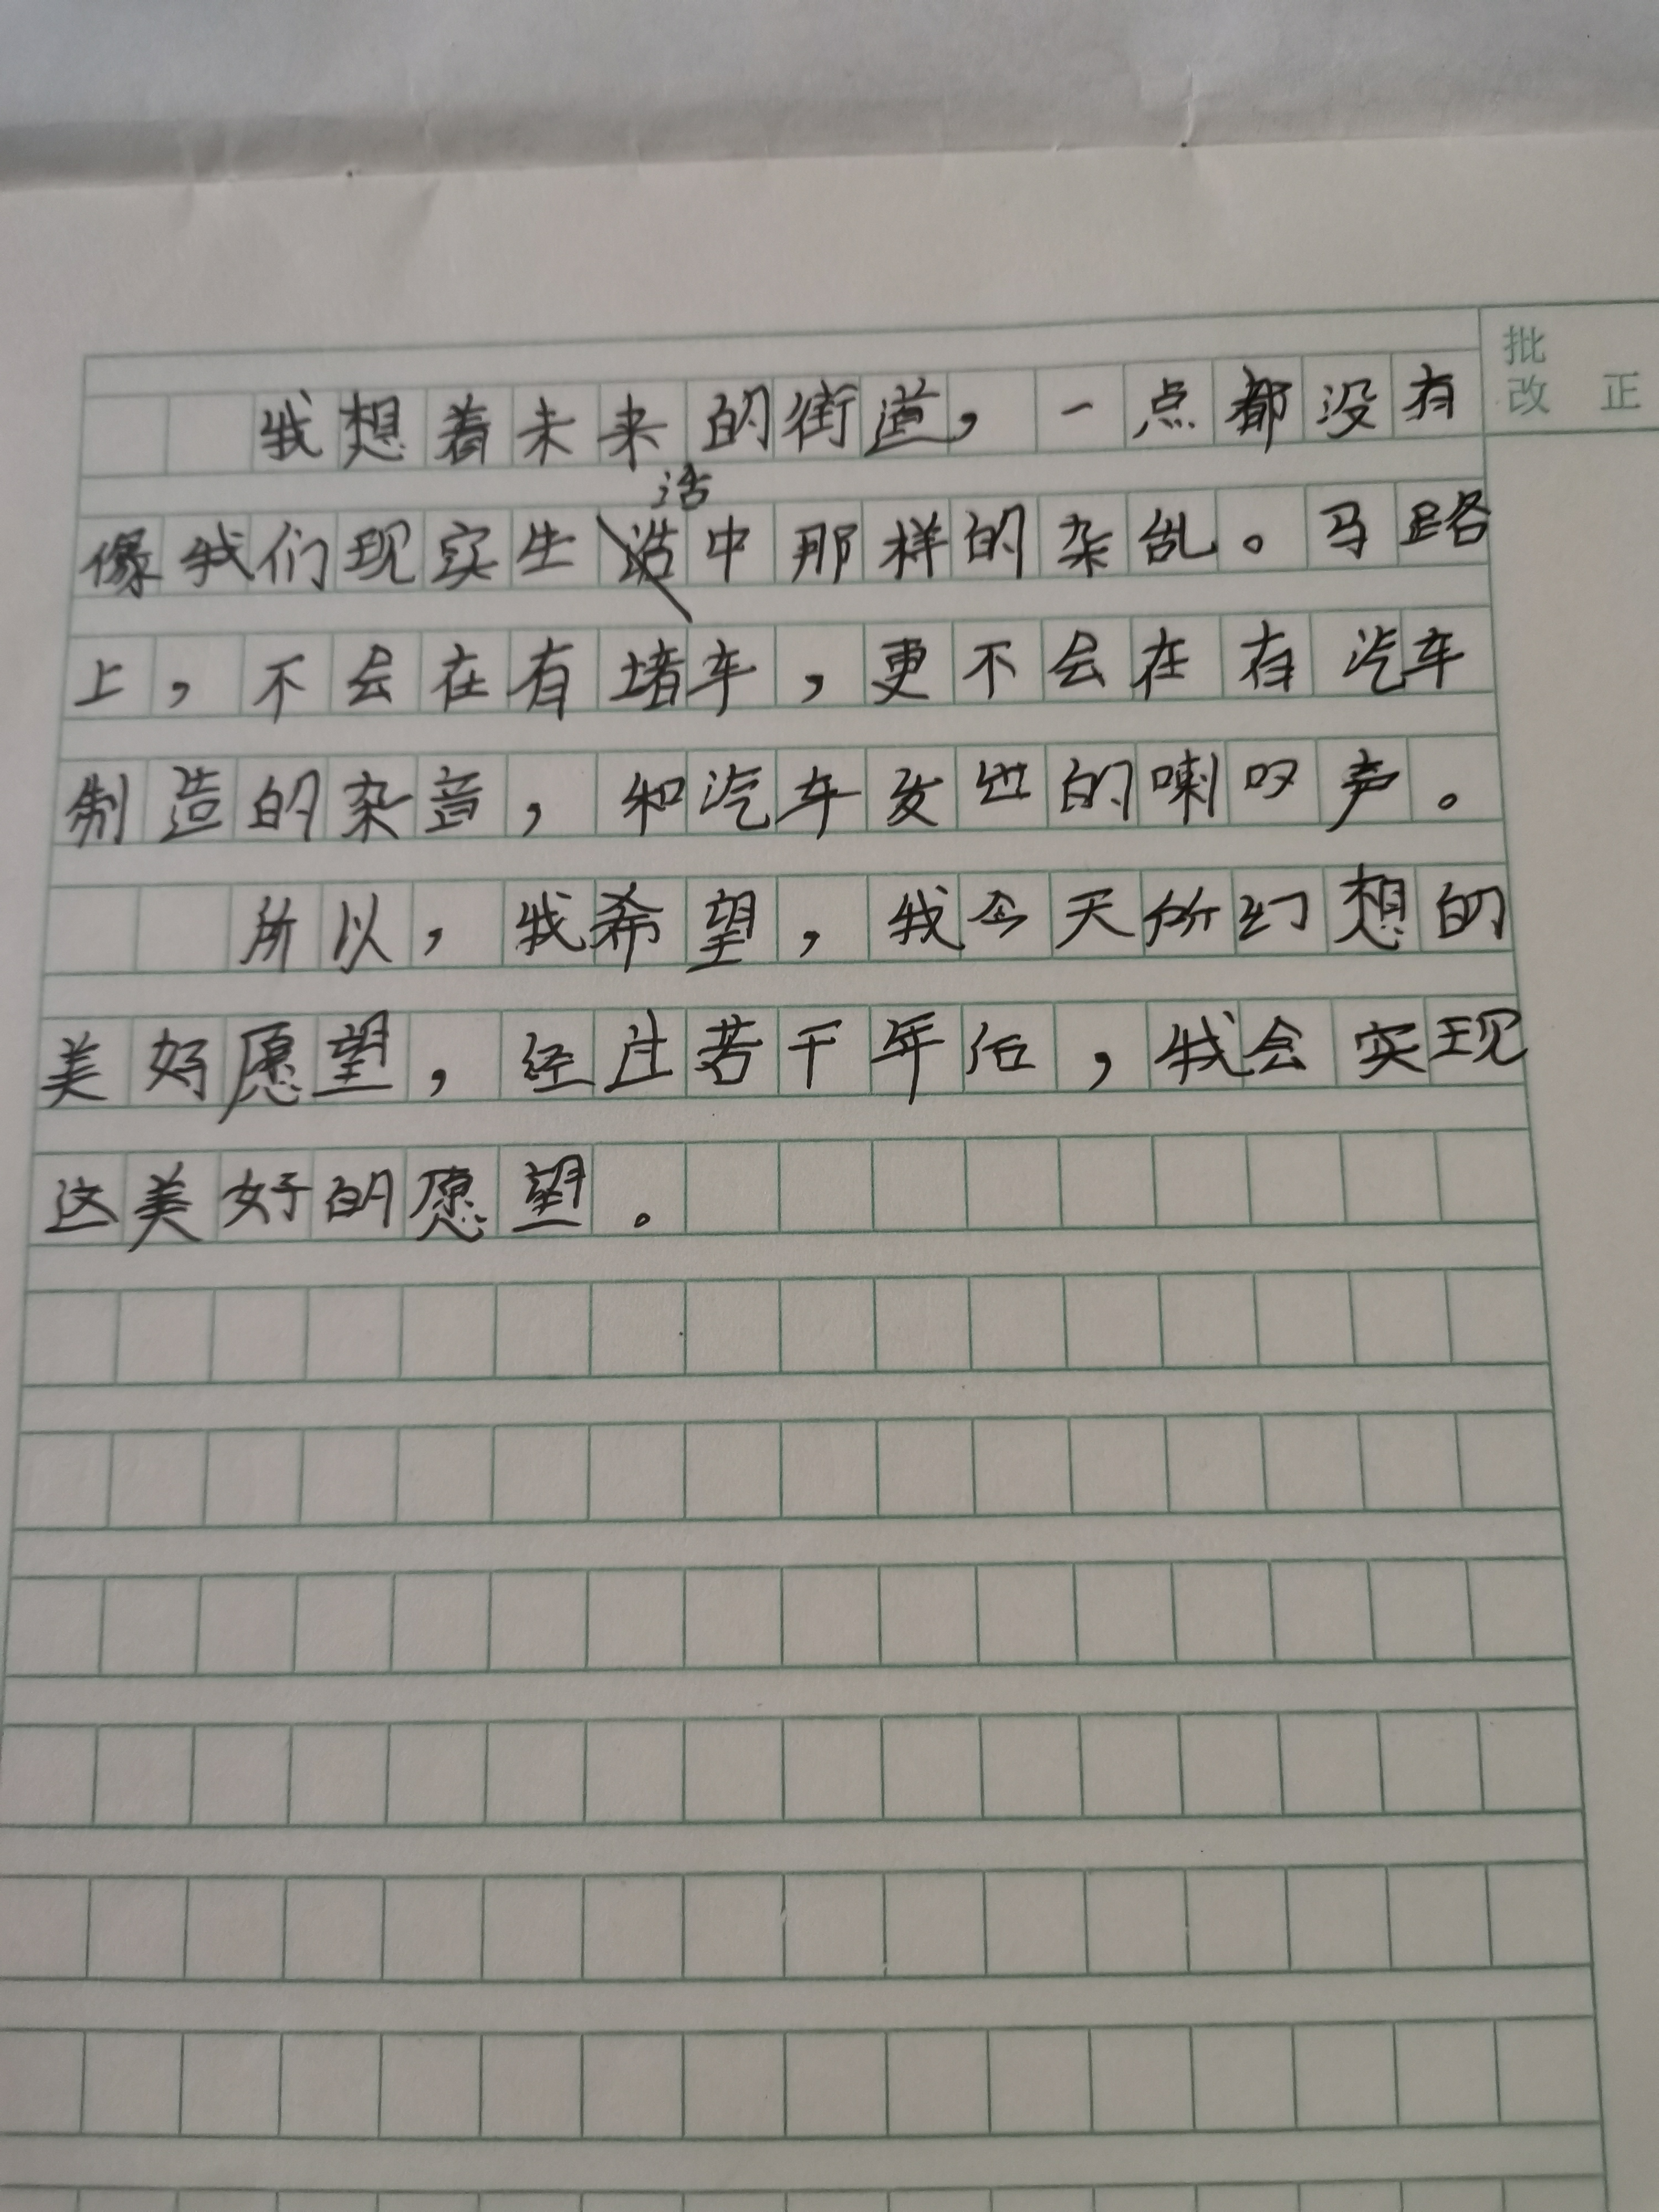 批
改 正
我想着未来的街道，一点都没有
活
像我们现实生中那样的杂乱。马路
上，不会在有堵车，更不会在有汽车
制造的杂音，和汽车发出的喇叭声。
所以，我希望，我今天所幻想的
美好愿望，经过若干年后，我会实现
这美好的愿望。